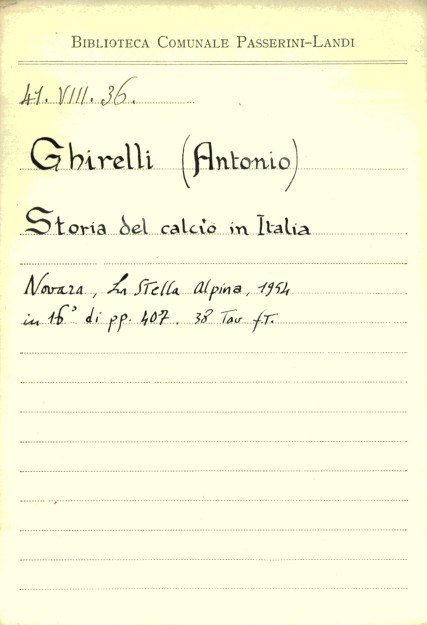 BIBLIOTECA COMUNALE PASSERINI-LANDI
41. VIII. 36.
Ghirelli (Antonio)
Storia del calcio in Italia
Novara, La Stella Alpina, 1954
in 16° di pp. 407. 38 Tav f.T.